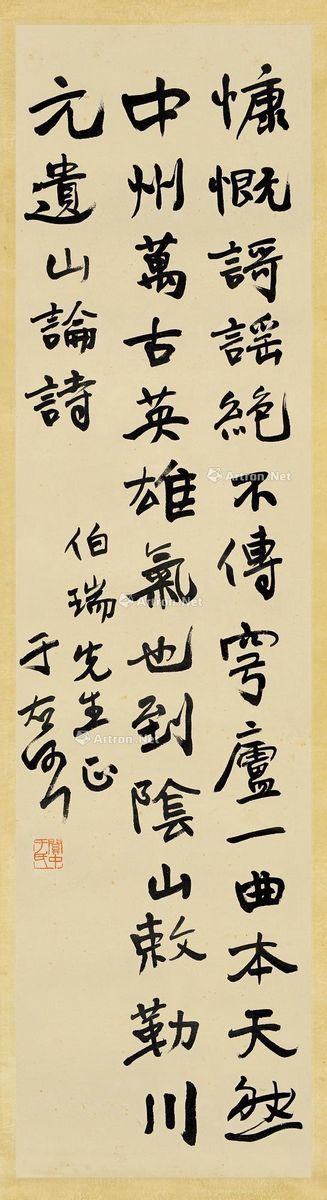 慷慨謌謠絶不傳穹廬一曲本天然
中州萬古英雄氣也到陰山敕勒川
元遺山論詩
伯瑞先生正
于右任
關中于氏
Artron.Net
Artron.Net
Artron.Net